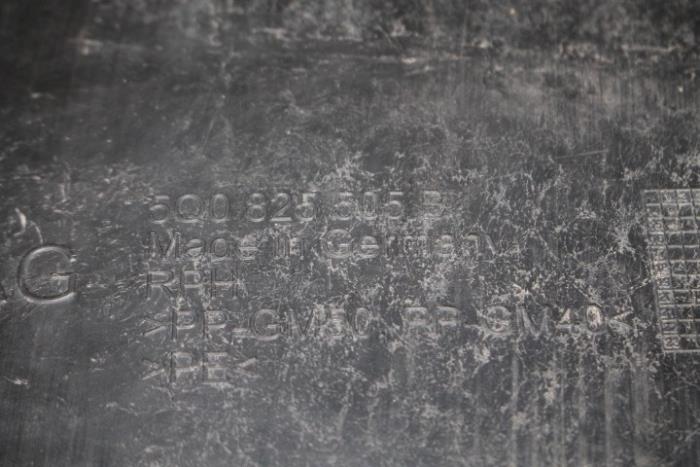 G
5Q0 825 505 B
Made in Germany
RPH
>PP-GM30, PP-GM40<
>PE<